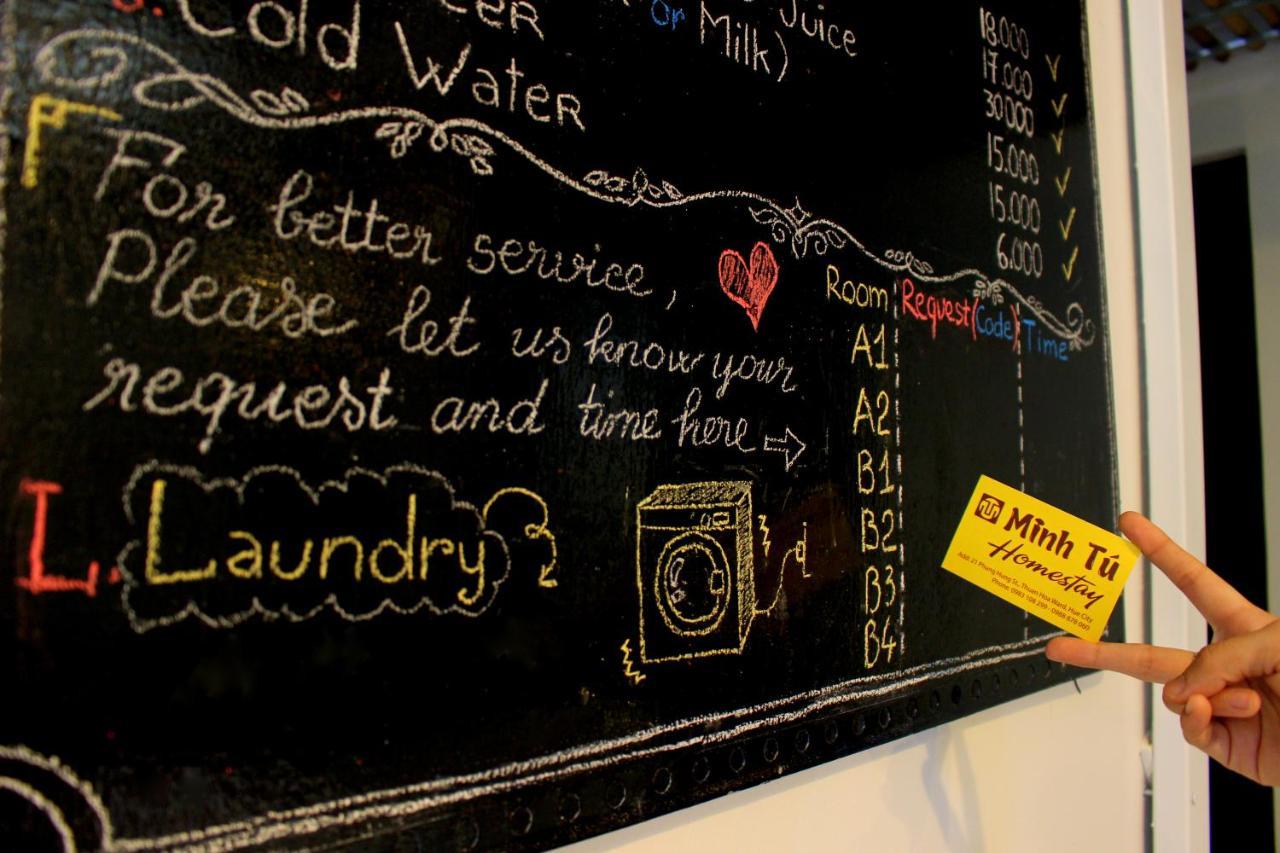 or Milk) Juice
Cold Water
18.000
17.000
30.000
15.000
15.000
6.000
For better service,
Please let us know your
request and time here
Room Request(Code) Time
A1
A2
B1
B2
B3
B4
I. Laundry
Minh Tú
Homestay
Add: 21 Phung Hung St., Thuan Hoa Ward, Hue City